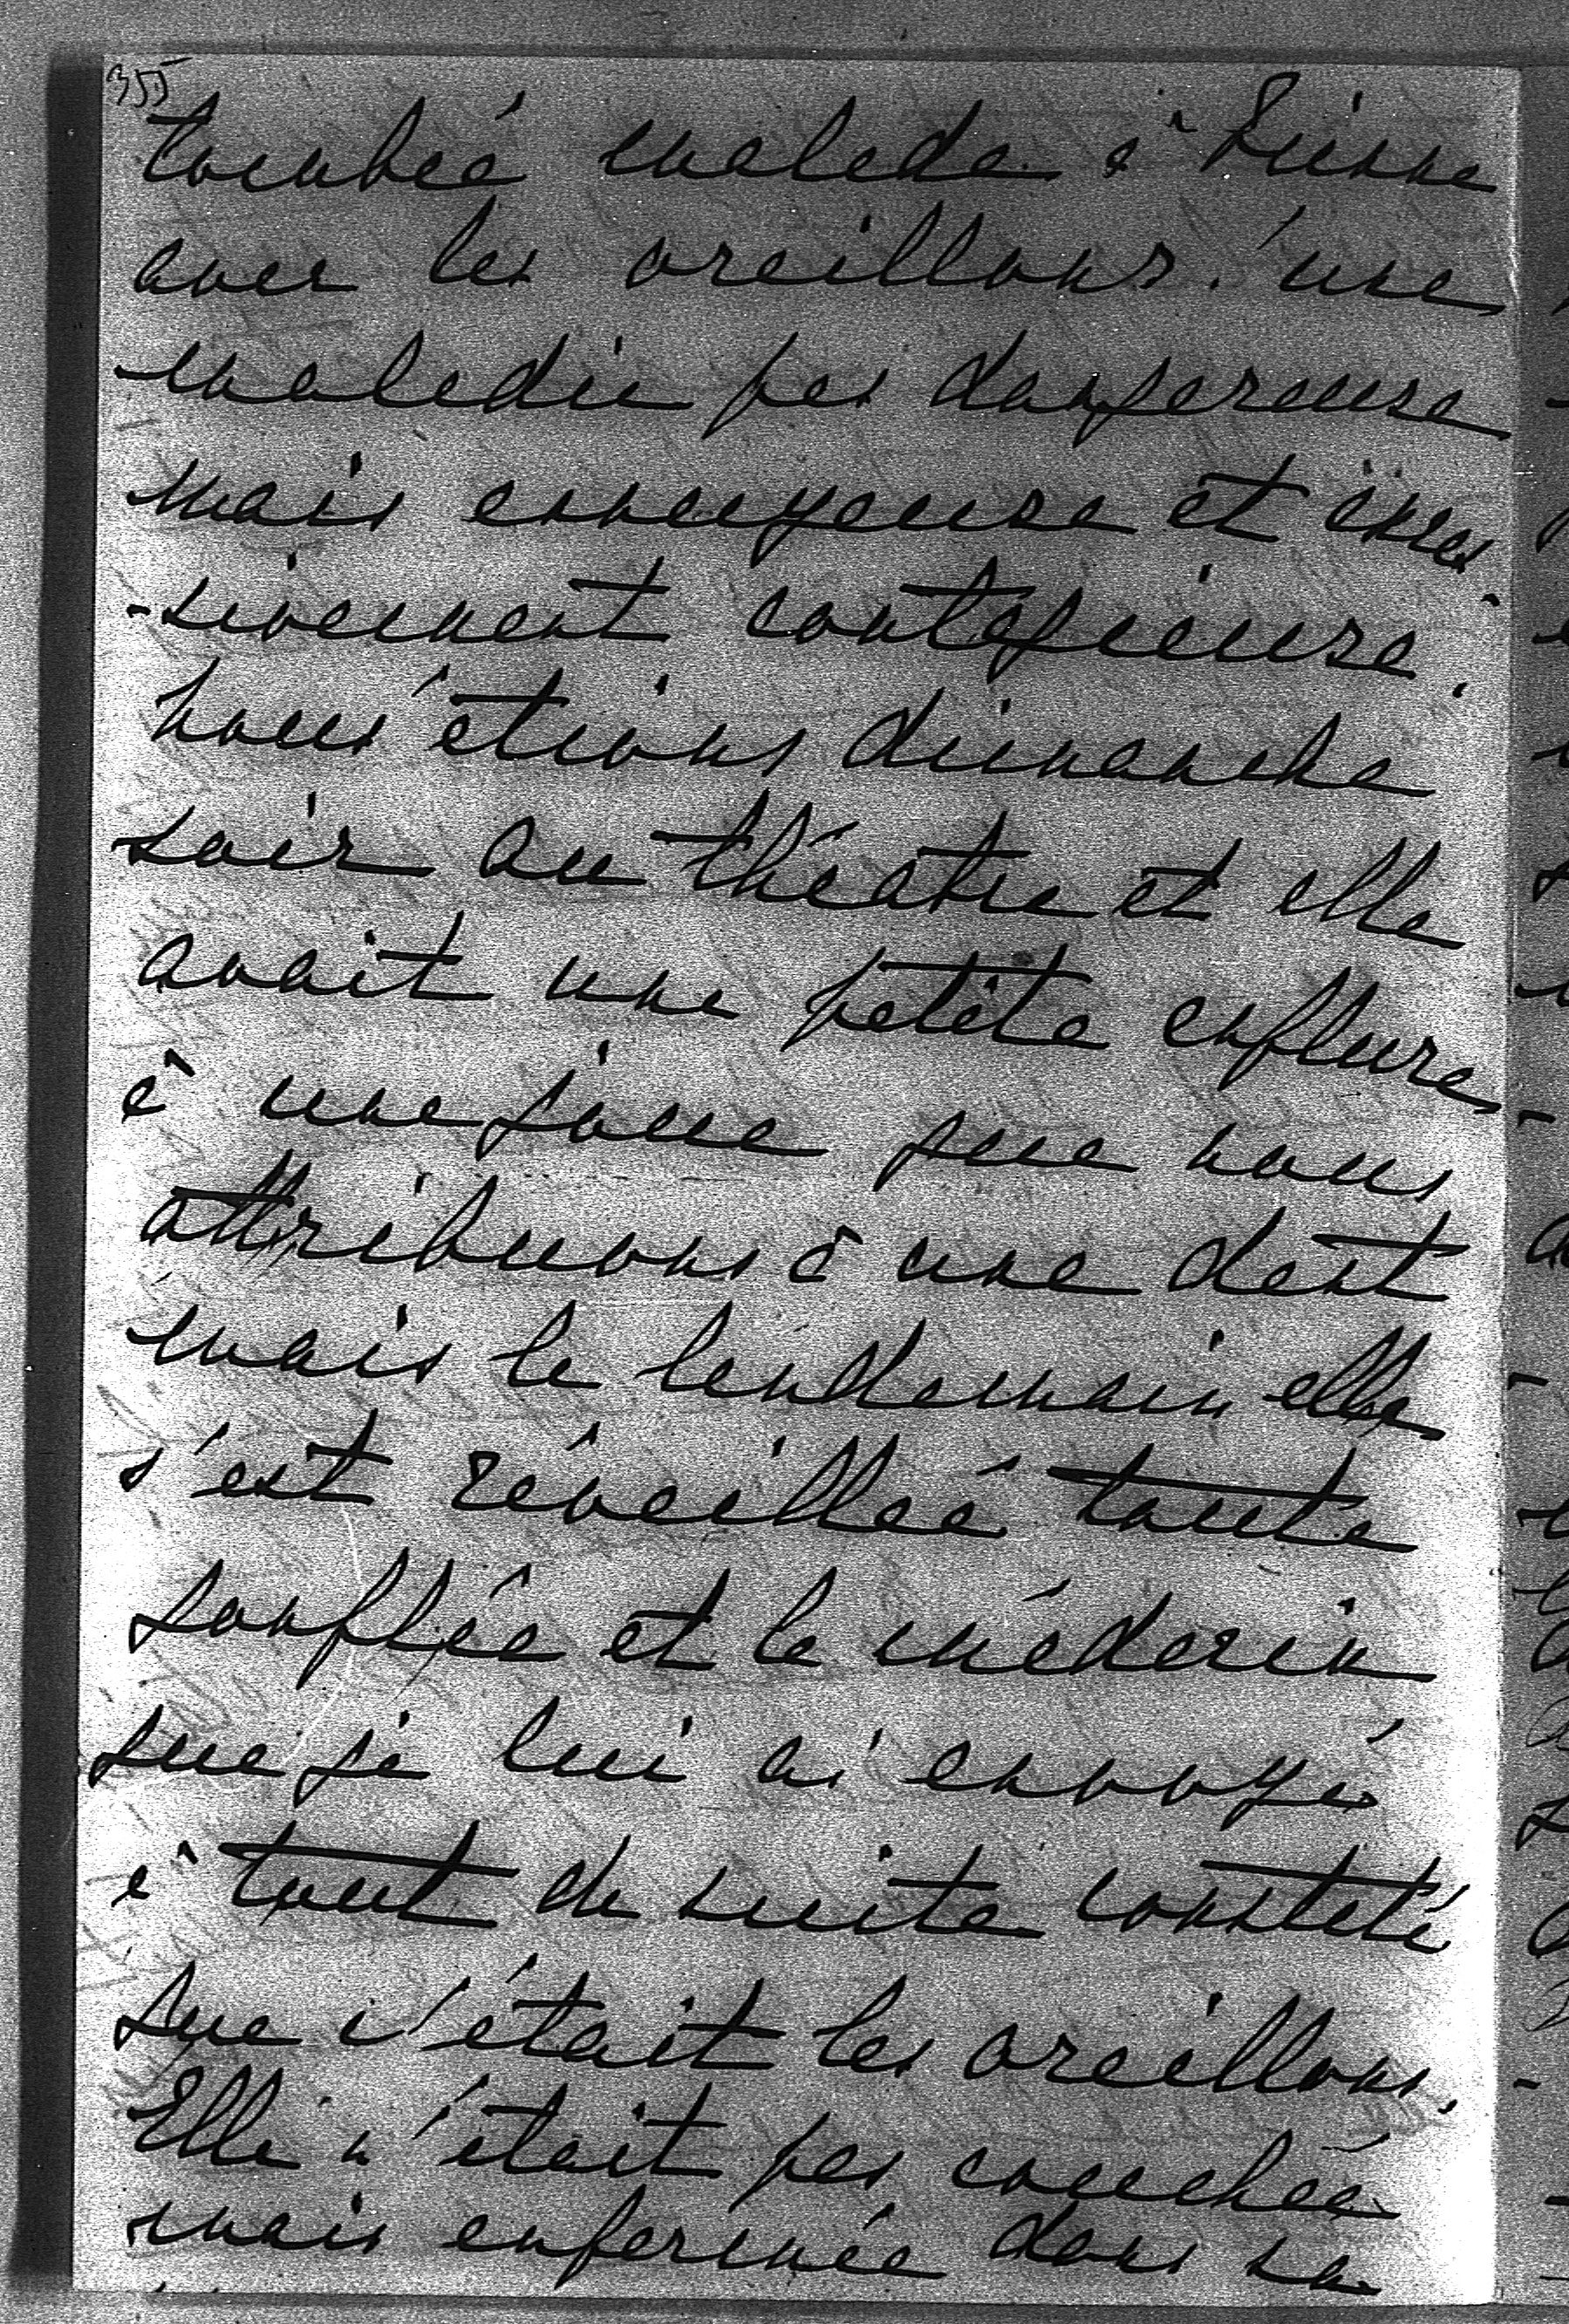 355
tombée malade à Vienne
avec les oreillons. une
maladie pas dangereuse
mais ennuyeuse et exces
-sivement contagieuse.
nous étions dimanche
soir au théatre et elle
avait une petite enflure
à une joue que nous
attribuons à une dent
mais le lendemain elle
s'est réveillée toute
gonflée et le médecin
que je lui ai envoyé
a tout de suite constaté
que c'était les oreillons.
Elle n'était pas couchée
mais enfermée dans sa